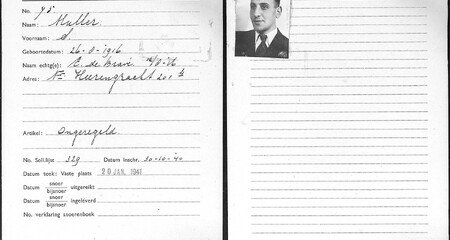 No. 75
Naam: Muller
Voornaam: S.
Geboortedatum: 26-8-1916
Naam echtg(e): de
Adres: Heerengracht 201
Artikel: Ongeregeld.
No. Soll.lijst 329 Datum inschr. 30-10-'40
Datum toek: Vaste plaats 20 JAN. 1941
Datum snoer/bijsnoer uitgereikt
Datum snoer/bijsnoer ingeleverd
No. verklaring snoerenboek